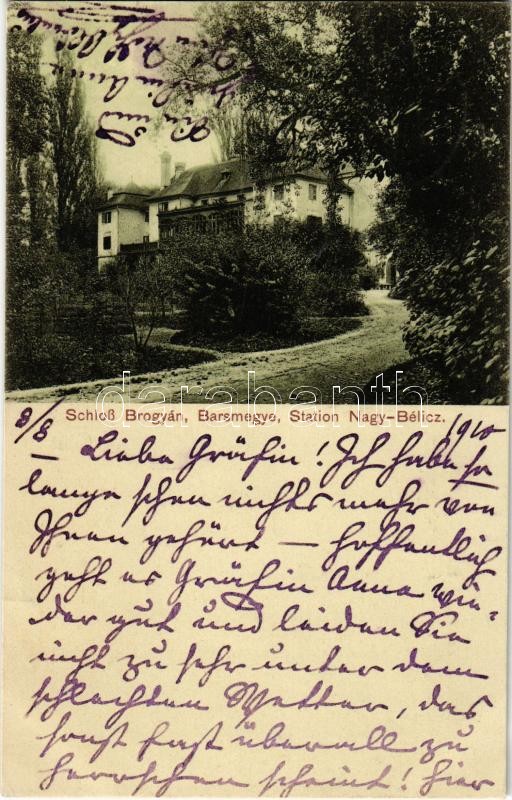 Schloß Brogyán, Barsmegye, Station Nagy-Bélicz.
8/8 1910
– Liebe Gräfin! Ich habe ja
lange schon nichts mehr von
Ihnen gehört – hoffentlich
geht es Gräfin Anna wie=
der gut und leiden Sie
nicht zu sehr unter dem
schlechten Wetter, das
sonst fast überall zu
herrschen scheint! Hier
Sie und
Gräfin Anna
darabanth.com